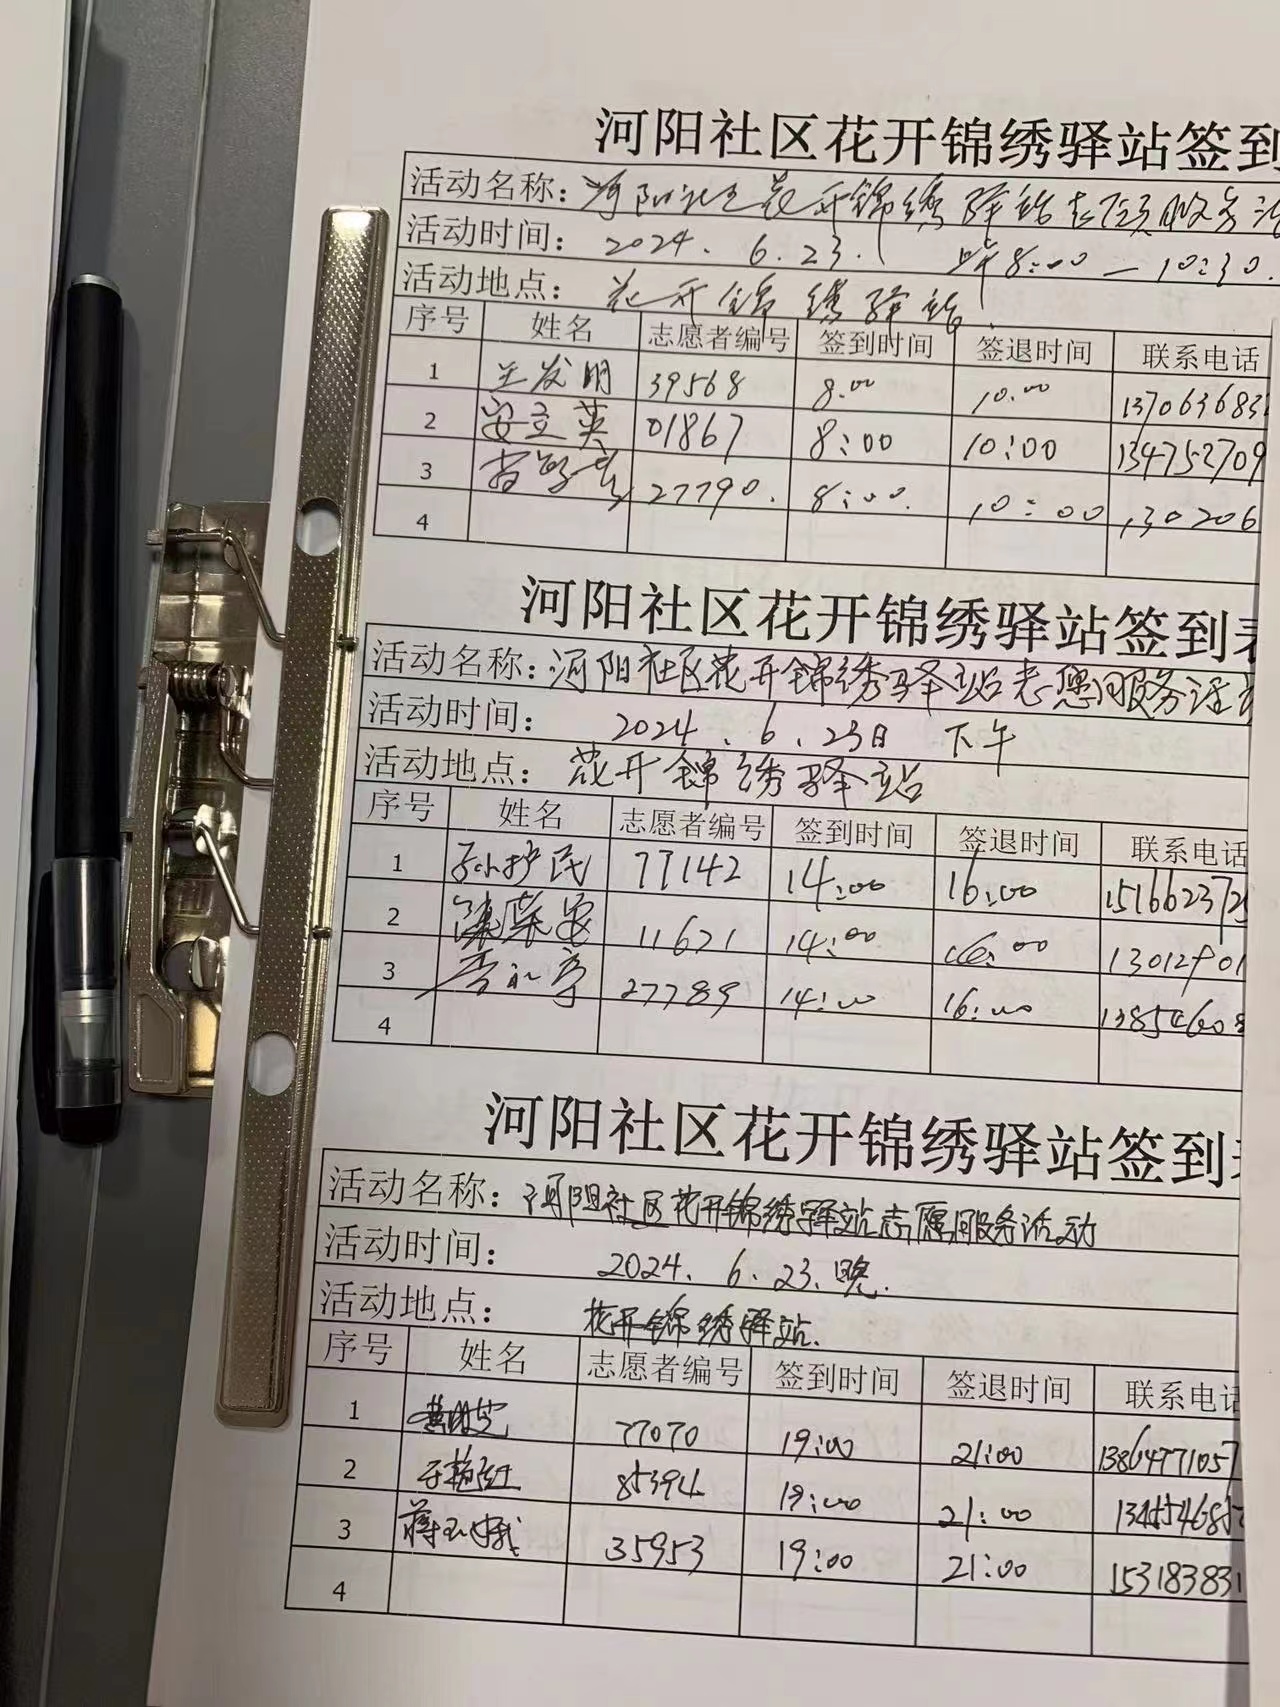 河阳社区花开锦绣驿站签到
活动名称：河阳社区花开锦绣驿站志愿服务活
活动时间：2024.6.23. 8:00—10:30.
活动地点：花开锦绣驿站
序号 姓名 志愿者编号 签到时间 签退时间 联系电话
1 王发明 39568 8:00 10:00 137063683
2 安立英 01867 8:00 10:00 134752709
3 27790. 8:00. 10:00 130206
4
河阳社区花开锦绣驿站签到表
活动名称：河阳社区花开锦绣驿站志愿服务活动
活动时间：2024.6.23日 下午
活动地点：花开锦绣驿站
序号 姓名 志愿者编号 签到时间 签退时间 联系电话
1 孙护民 77142 14:00 16:00 151662372
2 11621 14:00 16:00 13012901
3 27789 14:00 16:00 13854608
4
河阳社区花开锦绣驿站签到表
活动名称：河阳社区花开锦绣驿站志愿服务活动
活动时间：2024.6.23.晚.
活动地点：花开锦绣驿站.
序号 姓名 志愿者编号 签到时间 签退时间 联系电话
1 77070 19:00 21:00 13864771057
2 于艳红 85394 19:00 21:00
3 蒋玉娥 35953 19:00 21:00 153183831
4